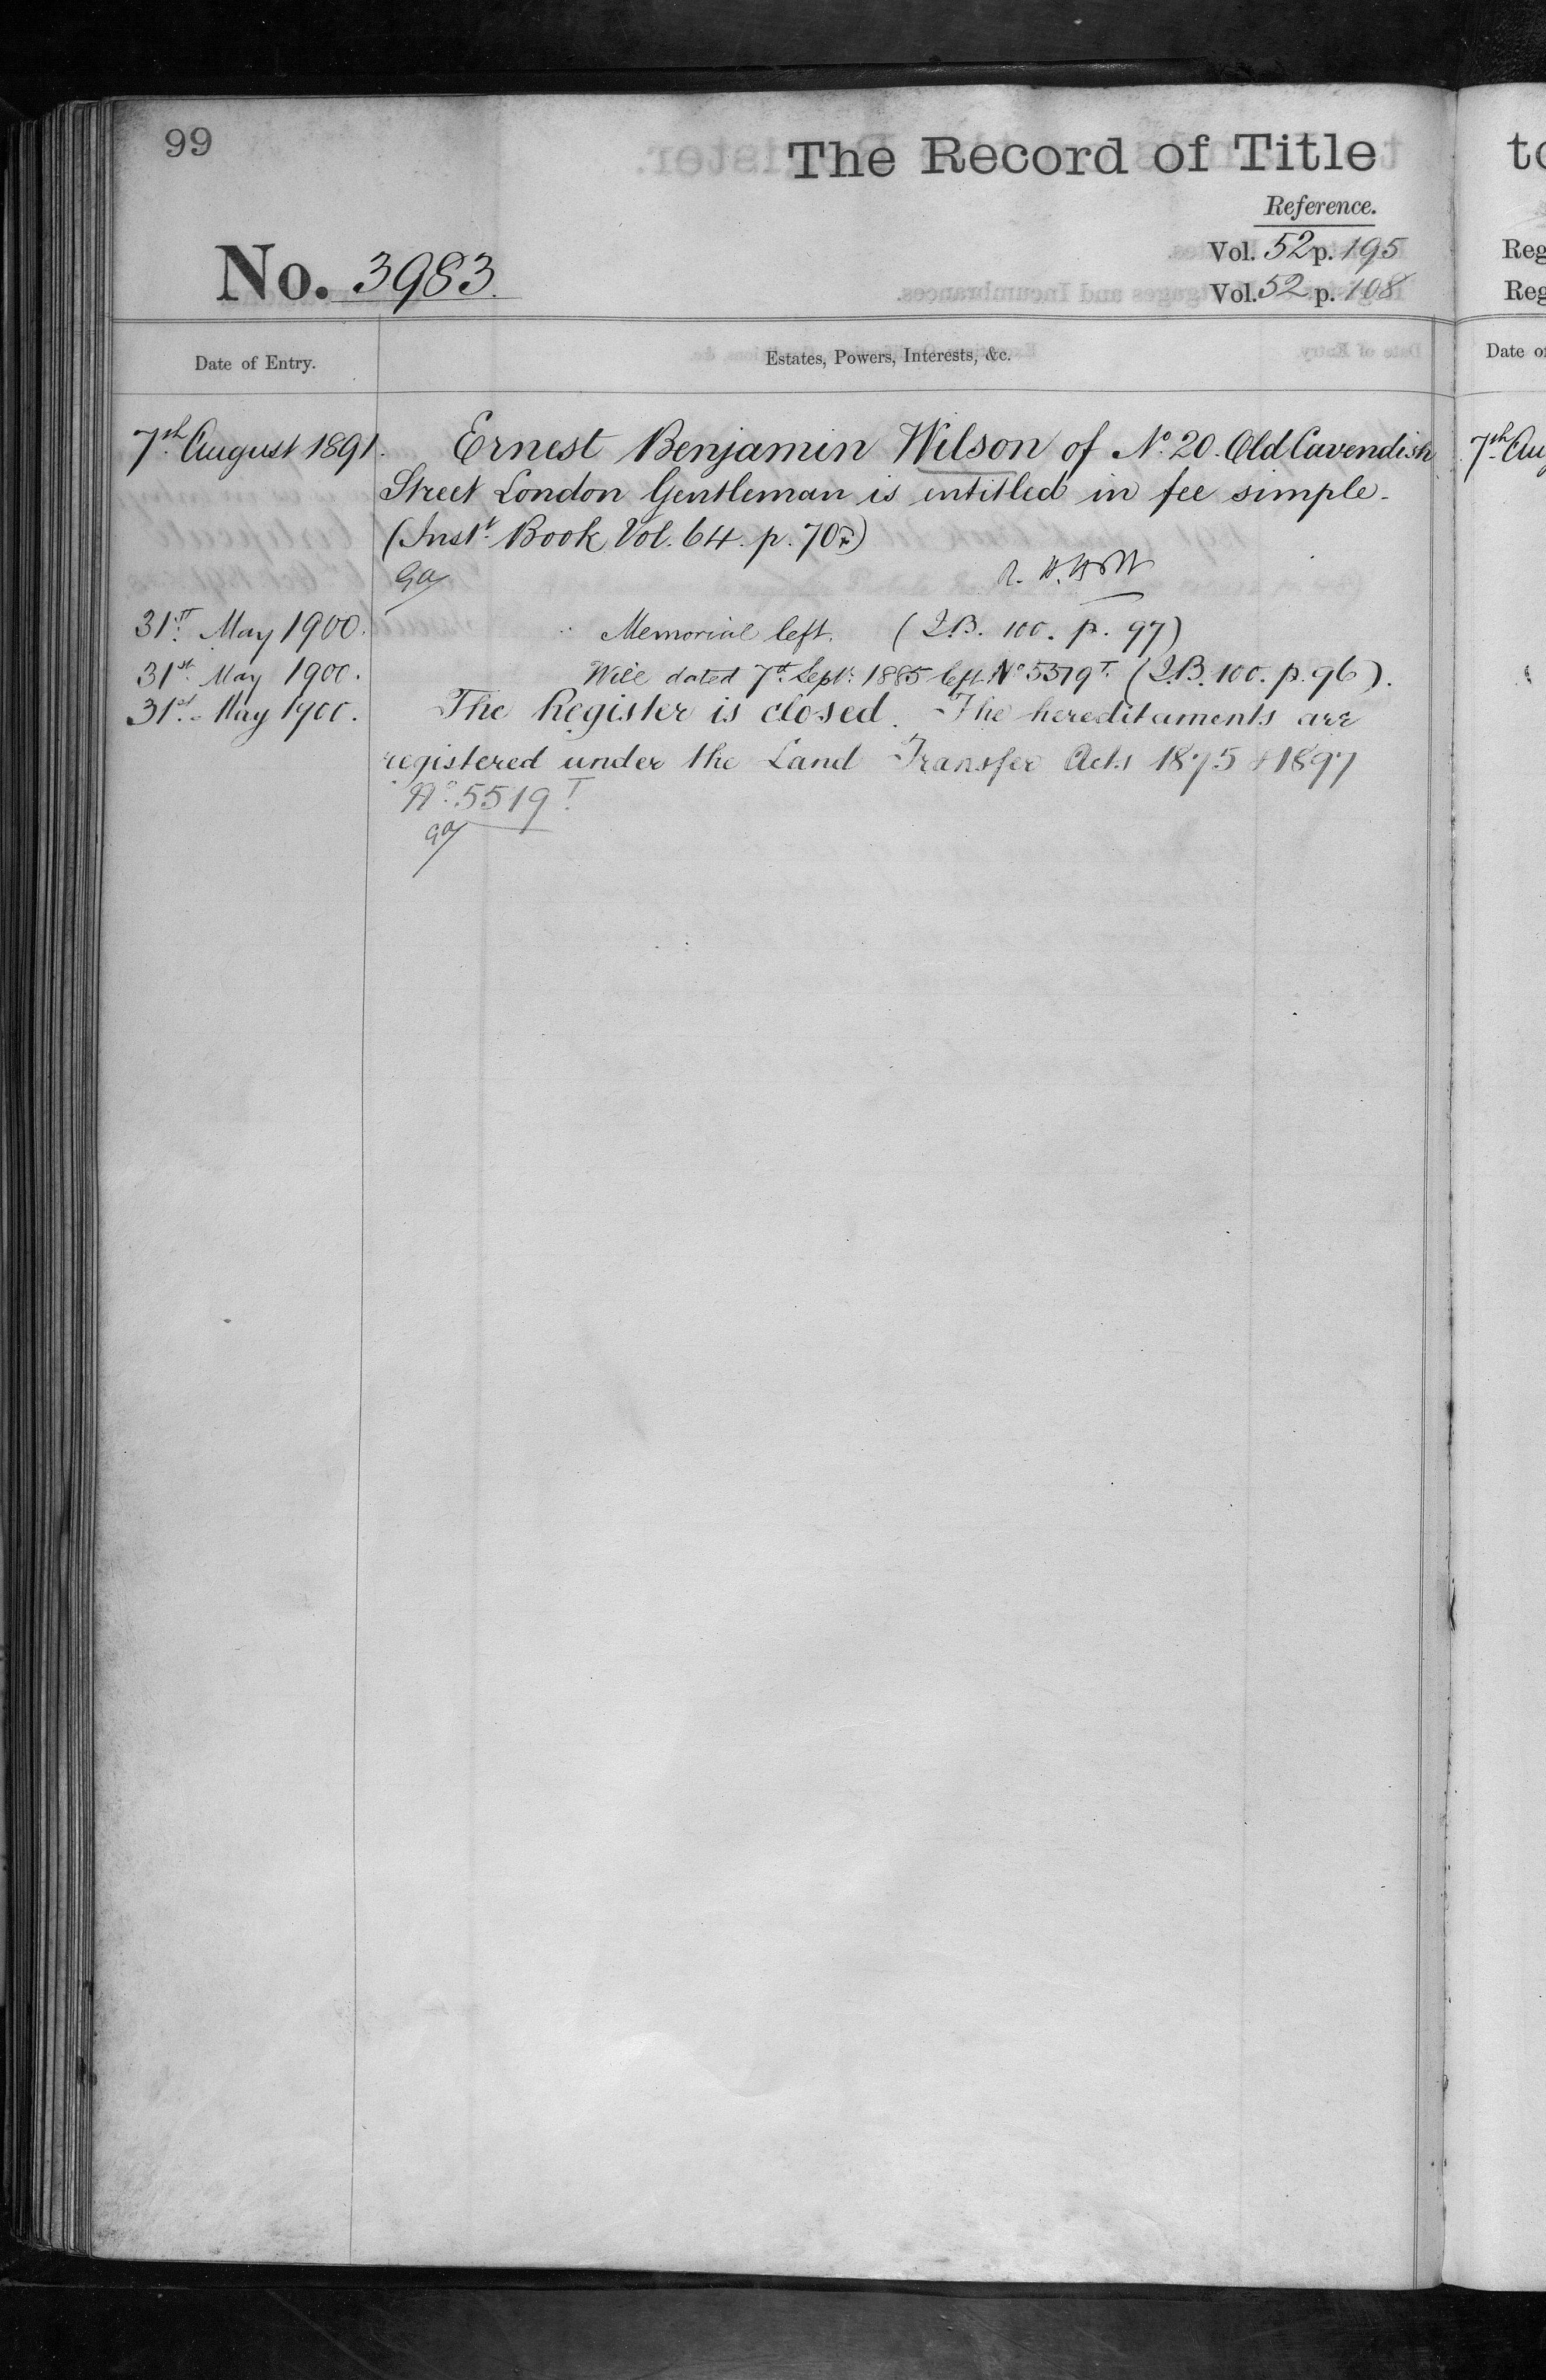 99
The Record of Title
Reference.
No. 3983.
Vol. 52 p. 195
Vol. 52 p. 108
Date of Entry.
Estates, Powers, Interests, &c.
7th August 1891. Ernest Benjamin Wilson of No. 20. Old Cavendish
Street London Gentleman is entitled in fee simple.
(Inst. Book Vol. 64. p. 70
31st May 1900. Memorial left. (I.B. 100. p. 97)
31st May 1900. Will dated 7th Sept. 1885 left No 5519T. (I.B. 100. p. 96).
31st May 1900. The Register is closed. The hereditaments are
registered under the Land Transfer Acts 1875 & 1897
No. 5519T.
to
Reg
Reg
Date of
7th Aug